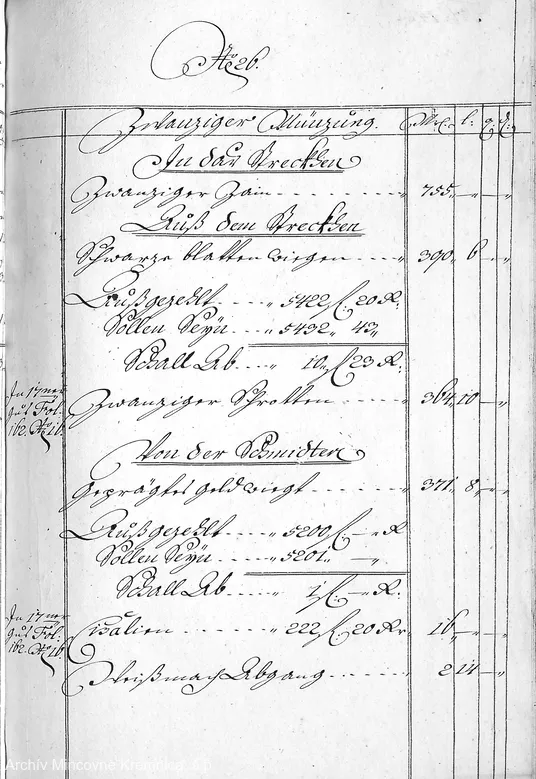 No 26.
Zwanziger Münzung. Mr. l: q d:
In das Streckhen
Zwanziger Zain - - - - - - - - - " 755 " - " - "
Auß dem Streckhen
Schwarze blatten wiegen - - - - " 390 " 6 - " - "
Außgezehlt - - - " 5422 f. 20 Kr.
Sollen Seyn - - " 5432 " 43 "
Schall Ab - - - " 10 " f 23 Kr.
In 17ner
Guß Fol:
162. No 16.
Zwanziger Schrotten - - - - " 364 " 10 - " - "
Von der Schmidten
Geprägtes Geld wiegt - - - - - " 371 " 8 " - " - "
Außgezehlt - - - - " 5200 f. - " Kr
Sollen Seyn - - - " 5201 " - "
Schall Ab - - - " 1 f. - Kr.
In 17ner
Guß Fol:
162. No 16.
Cisalien - - - - - - 222 f. 20 Kr " 16 " - " - "
Weißmach Abgang - - - - - " 2 14 - " - "
Archív Mincovne Kremnica